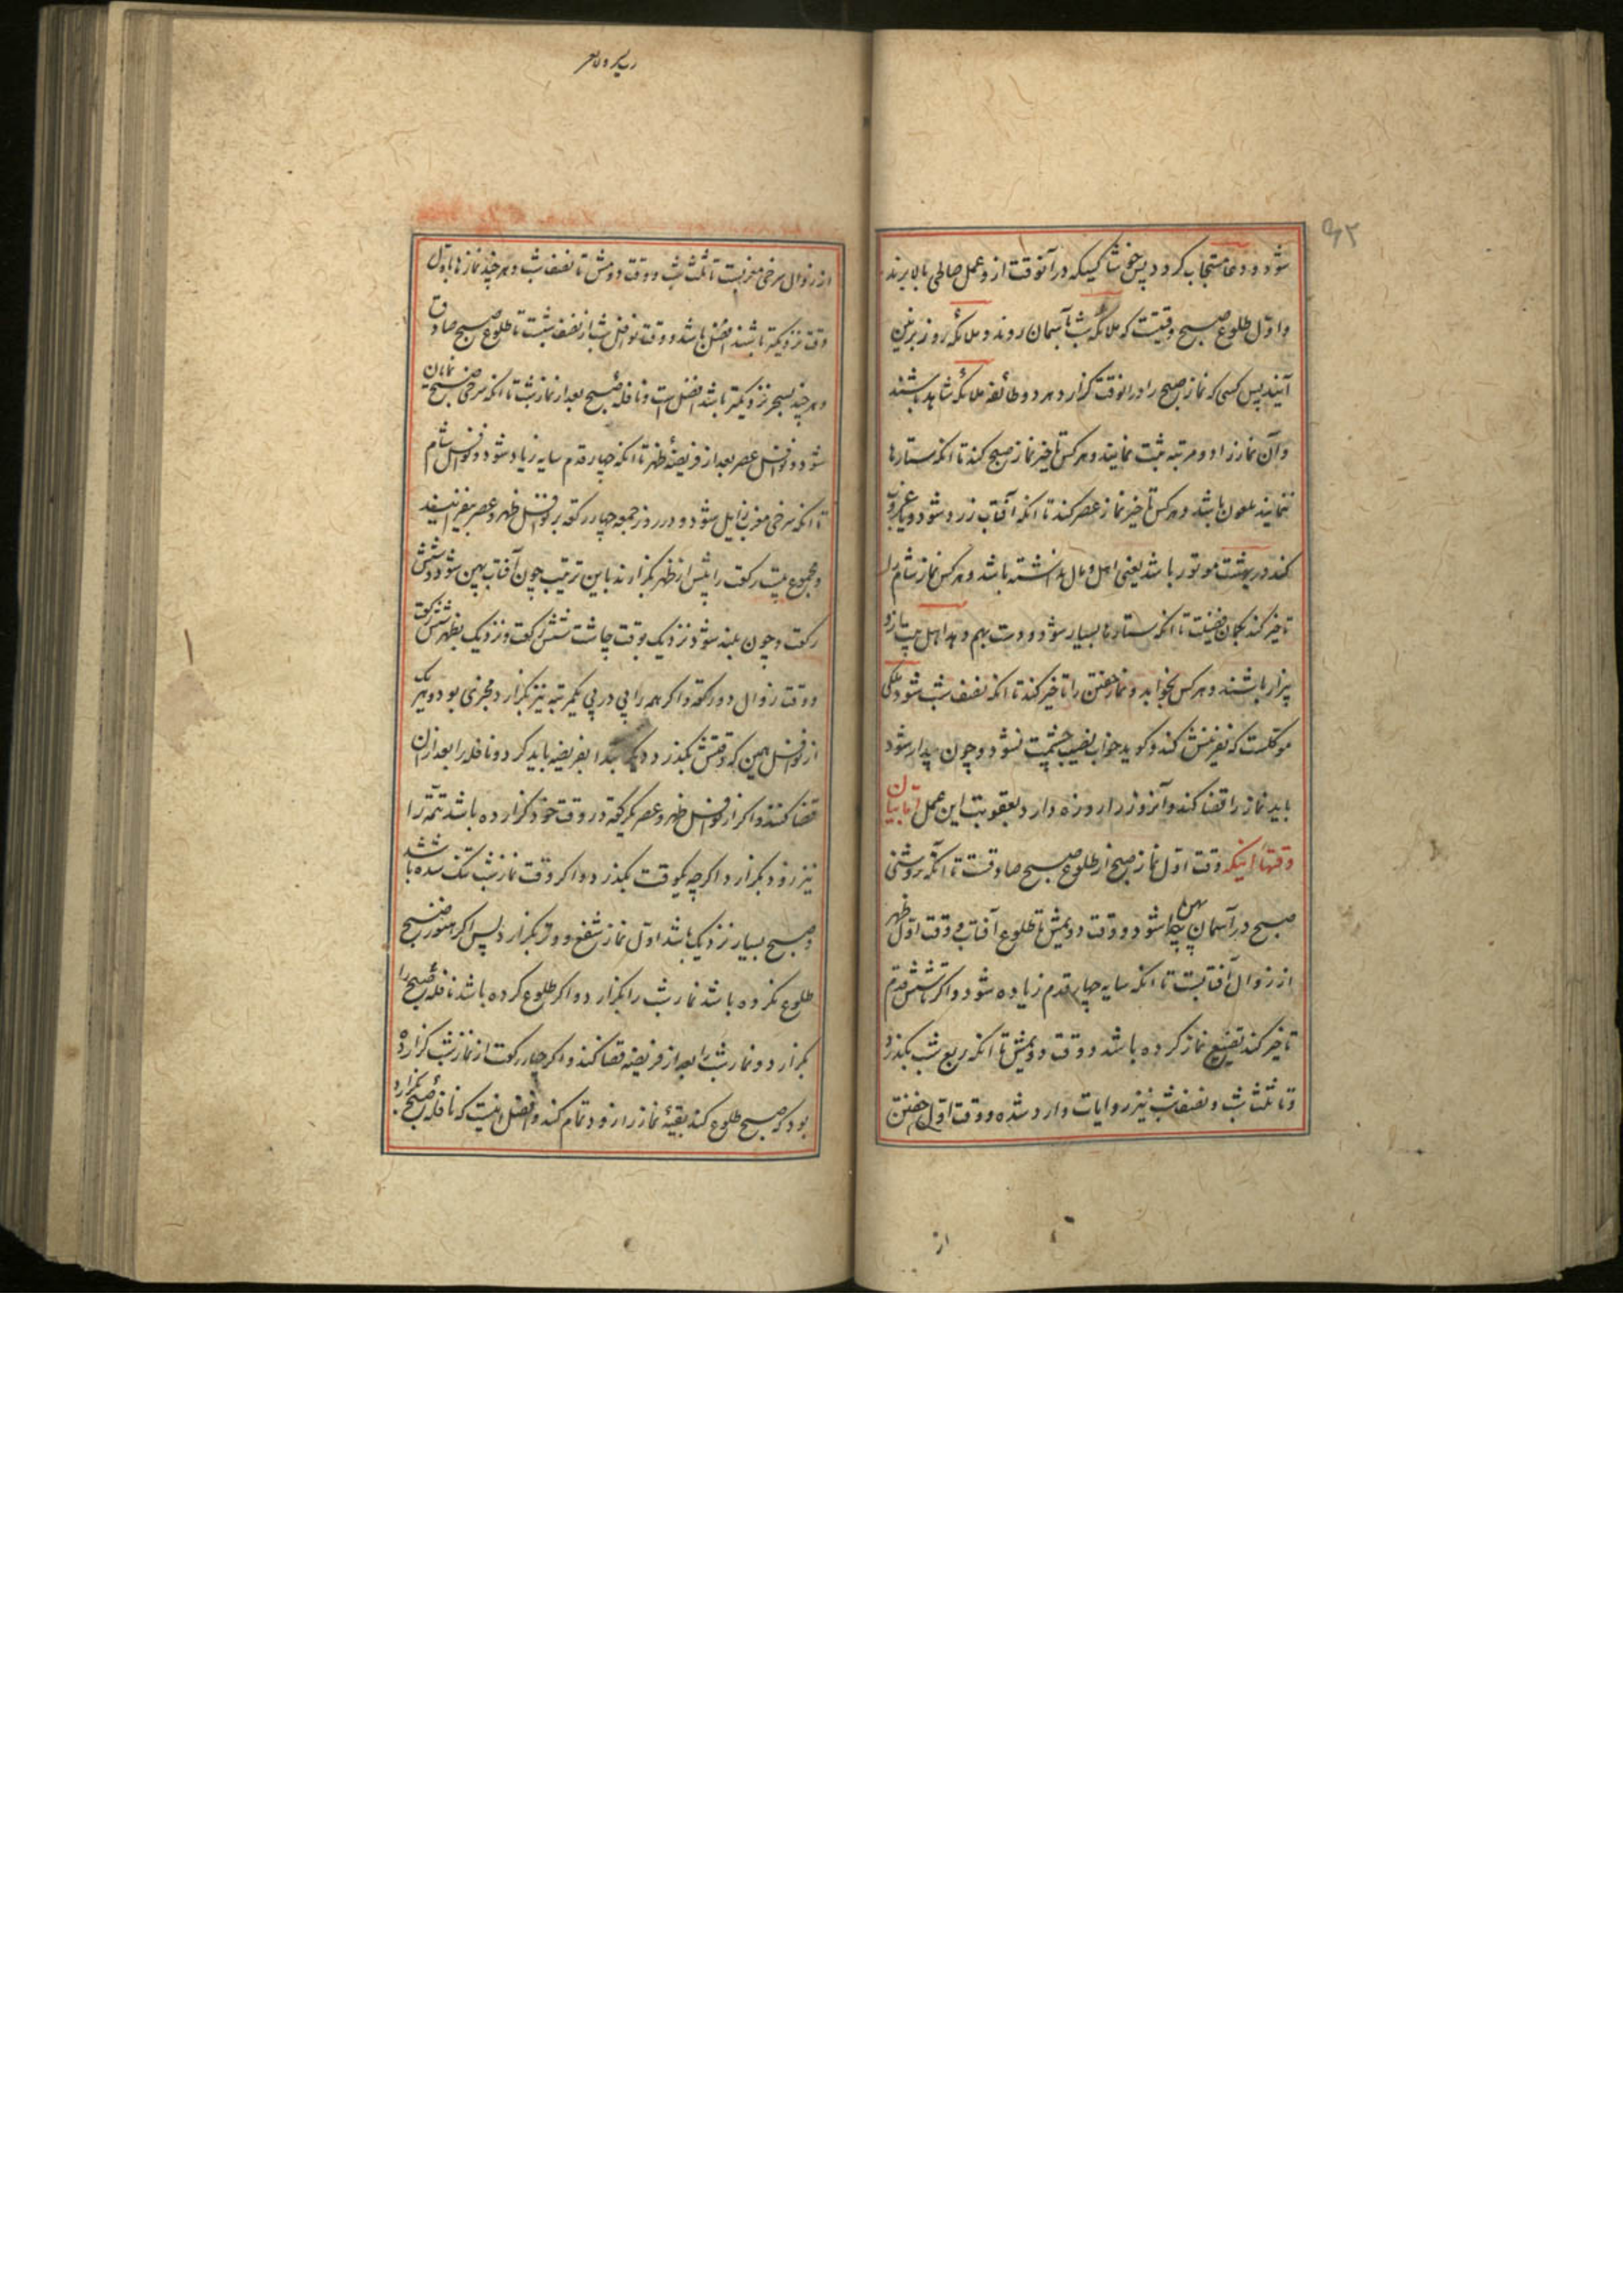 ۹۲
شود و دعا مستجاب کردد پس خوشا کسیکه در آنوقت ازو عمل صالحی بالا برند
و اول طلوع صبح وقتیست که ملائکه شب بآسمان روند و ملائکه روز بزمین
آیند پس کسی که نماز صبح را در انوقت کزارد هر دو طائفه ملائکه شاهد باشند
و آن نماز را دو مرتبه ثبت نمایند و هر کس تاخیر نماز صبح کند تا انکه ستارها
ننمایند ملعون باشد و هر کس تاخیر نماز عصر کند تا انکه آفتاب زرد شود و یا غروب
کند در بهشت موتور باشد یعنی اهل و مال نداشته باشد و هر کس نماز شام را
تاخیر کند بکمان فضیلت تا انکه ستارها بسیار شود و دست بهم دهد اهل بیت ازو
بیزار باشند و هر کس بخوابد و نماز خفتن را تاخیر کند تا انکه نصف شب شود ملکی
موکلست که نفرینش کند و کوید خواب نصیب چشمت نشود و چون بیدار شود
باید نماز را قضا کند و آنروز را روزه دارد بعقوبت این عمل اما بیان
وقتها اینکه وقت اول نماز صبح از طلوع صبح صادقست تا آنکه روشنی
صبح در آسمان پهن پیدا شود و وقت دویمش تا طلوع آفتاب و وقت اول ظهر
از زوال آفتابست تا انکه سایه چهار قدم زیاده شود و اکر تا شش قدم
تاخیر کند تضییع نماز کرده باشد و وقت دویمش تا انکه ربع شب بکذرد
و تا ثلث شب و نصف شب نیز روایات وارد شده و وقت اول خفتن
از
از زوال سرخی مغربست تا ثلث شب و وقت دومش تا نصف شب و هر چند نمازها باول
وقت نزدیکتر باشند افضل باشد و وقت نوافل شب از نصف شبست تا طلوع صبح صادق
و هر چند بسحر نزدیکتر باشد افضل است و نافله صبح بعد از نماز شبست تا انکه سرخی صبح نمایان
شود و نوافل عصر بعد از فریضه ظهر تا انکه چهار قدم سایه زیاد شود و نوافل شام
تا انکه سرخی مغرب زایل شود و در روز جمعه چهار رکعت بر نوافل ظهر و عصر بیفزایند
و مجموع بیست رکعت را پیش از ظهر بکزارند باین ترتیب چون آفتاب پهن شود شش
رکعت و چون بلند شود نزدیک بوقت چاشت شش رکعت و نزدیک بظهر شش رکعت
و وقت زوال دو رکعت و اکر همه را پی در پی یکمرتبه نیز بکزارد مجزی بود و هر یک
از نوافل همین که وقتش بکذرد دیکر ابتدا بفریضه باید کرد و نافله را بعد ازان
قضا کنند و اکر از نوافل ظهر و عصر یک رکعت در وقت خود کزارده باشد تتمه را
نیز زود بکزارد اکرچه یکوقت بکذرد و اکر وقت نماز شب تنک شده باشد
و صبح بسیار نزدیک باشد اول نماز شفع و وتر بکزارد پس اکر هنوز صبح
طلوع نکرده باشد نماز شب را بکزارد و اکر طلوع کرده باشد نافله صبح را
بکزارد و نماز شب را بعد از فریضه قضا کند و اکر چهار رکعت از نماز شب کزارده
بود که صبح طلوع کند بقیه نماز را زود تمام کند و افضل اینست که نافله صبح را بکزارد